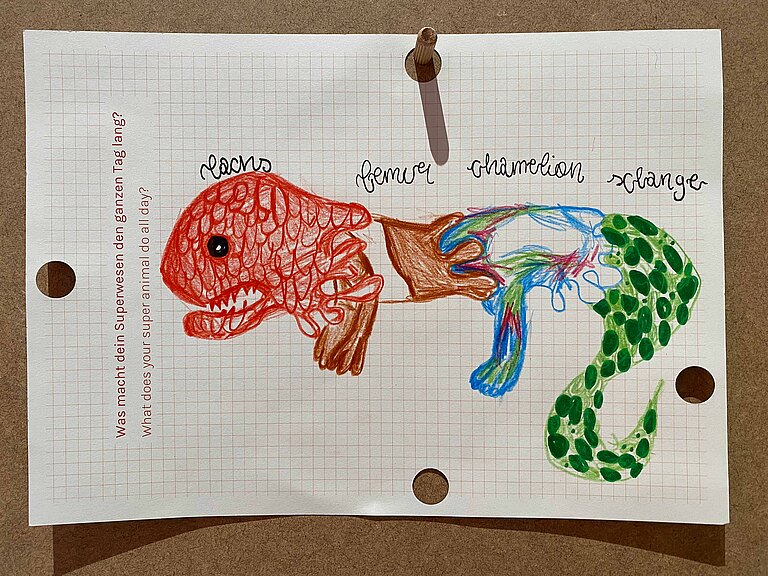 Was macht dein Superwesen den ganzen Tag lang?
What does your super animal do all day?
Lachs
femur
chamelion
schange